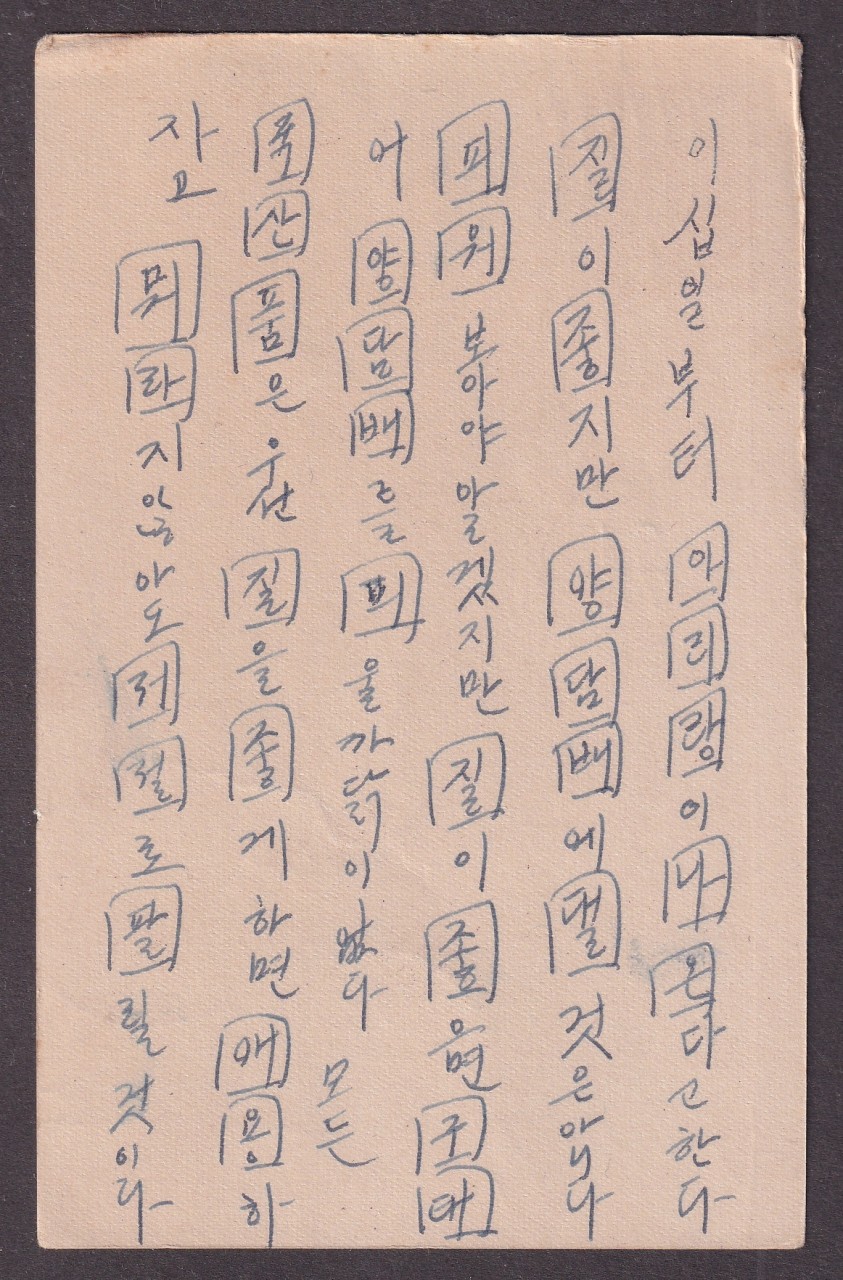 이십일부터 아리랑이 나온다고한다
질이 좋지만 양담배에 댈 것은아니다
피워 보아야 알겠지만 질이 좋으면 구태
어 양담배를 피울까닭이 없다 모든
국산품은 우선 질을 좋게하면 애용하
자고 뭐라지 않아도 저절로 팔릴 것이다